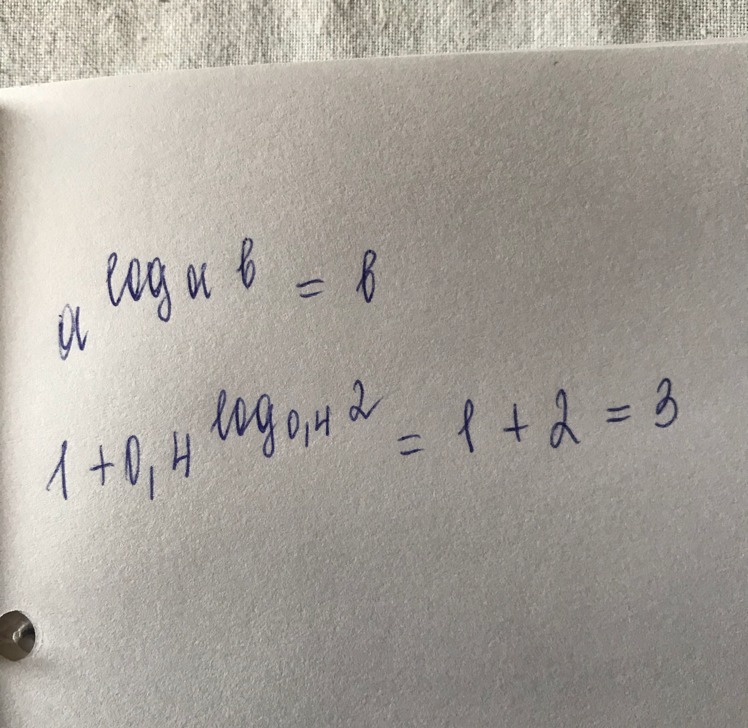 a^log_a b = b
1+0,4^log_0,4 2 = 1 + 2 = 3